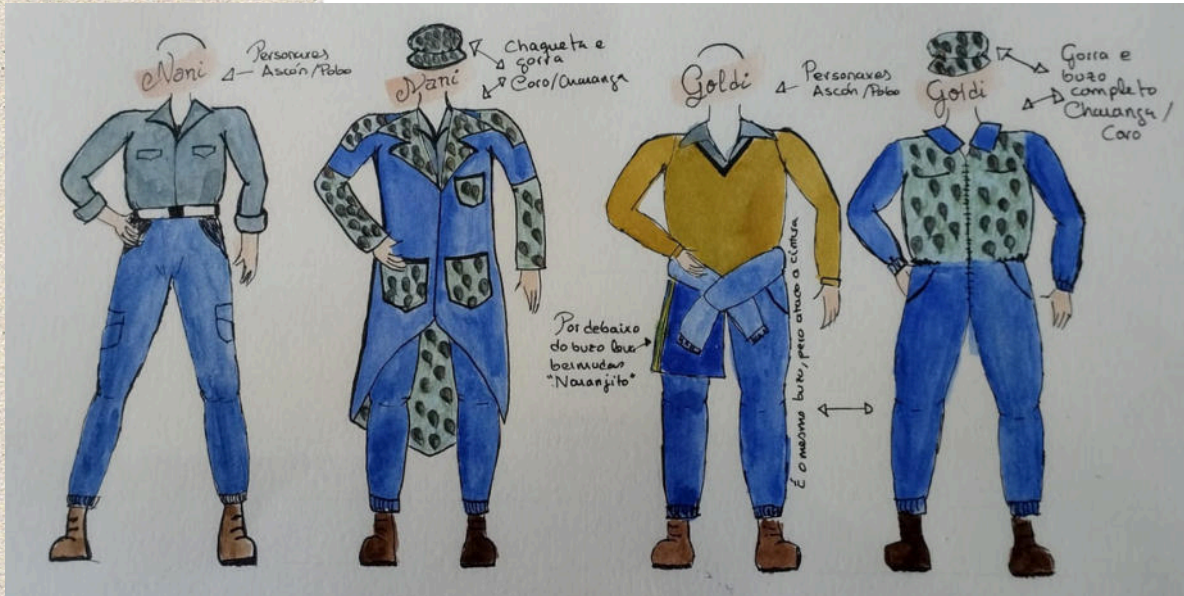 Nani
Personaxes
Ascón/Pobo
Nani
Chaqueta e
gorra
Coro/Charanga
Goldi
Personaxes
Ascón/Pobo
Goldi
Gorra e
buzo
completo
Charanga /
Coro
Por debaixo
do buzo leva
bermudas
"Naranjito"
É o mesmo buzo, pero atado a cintura